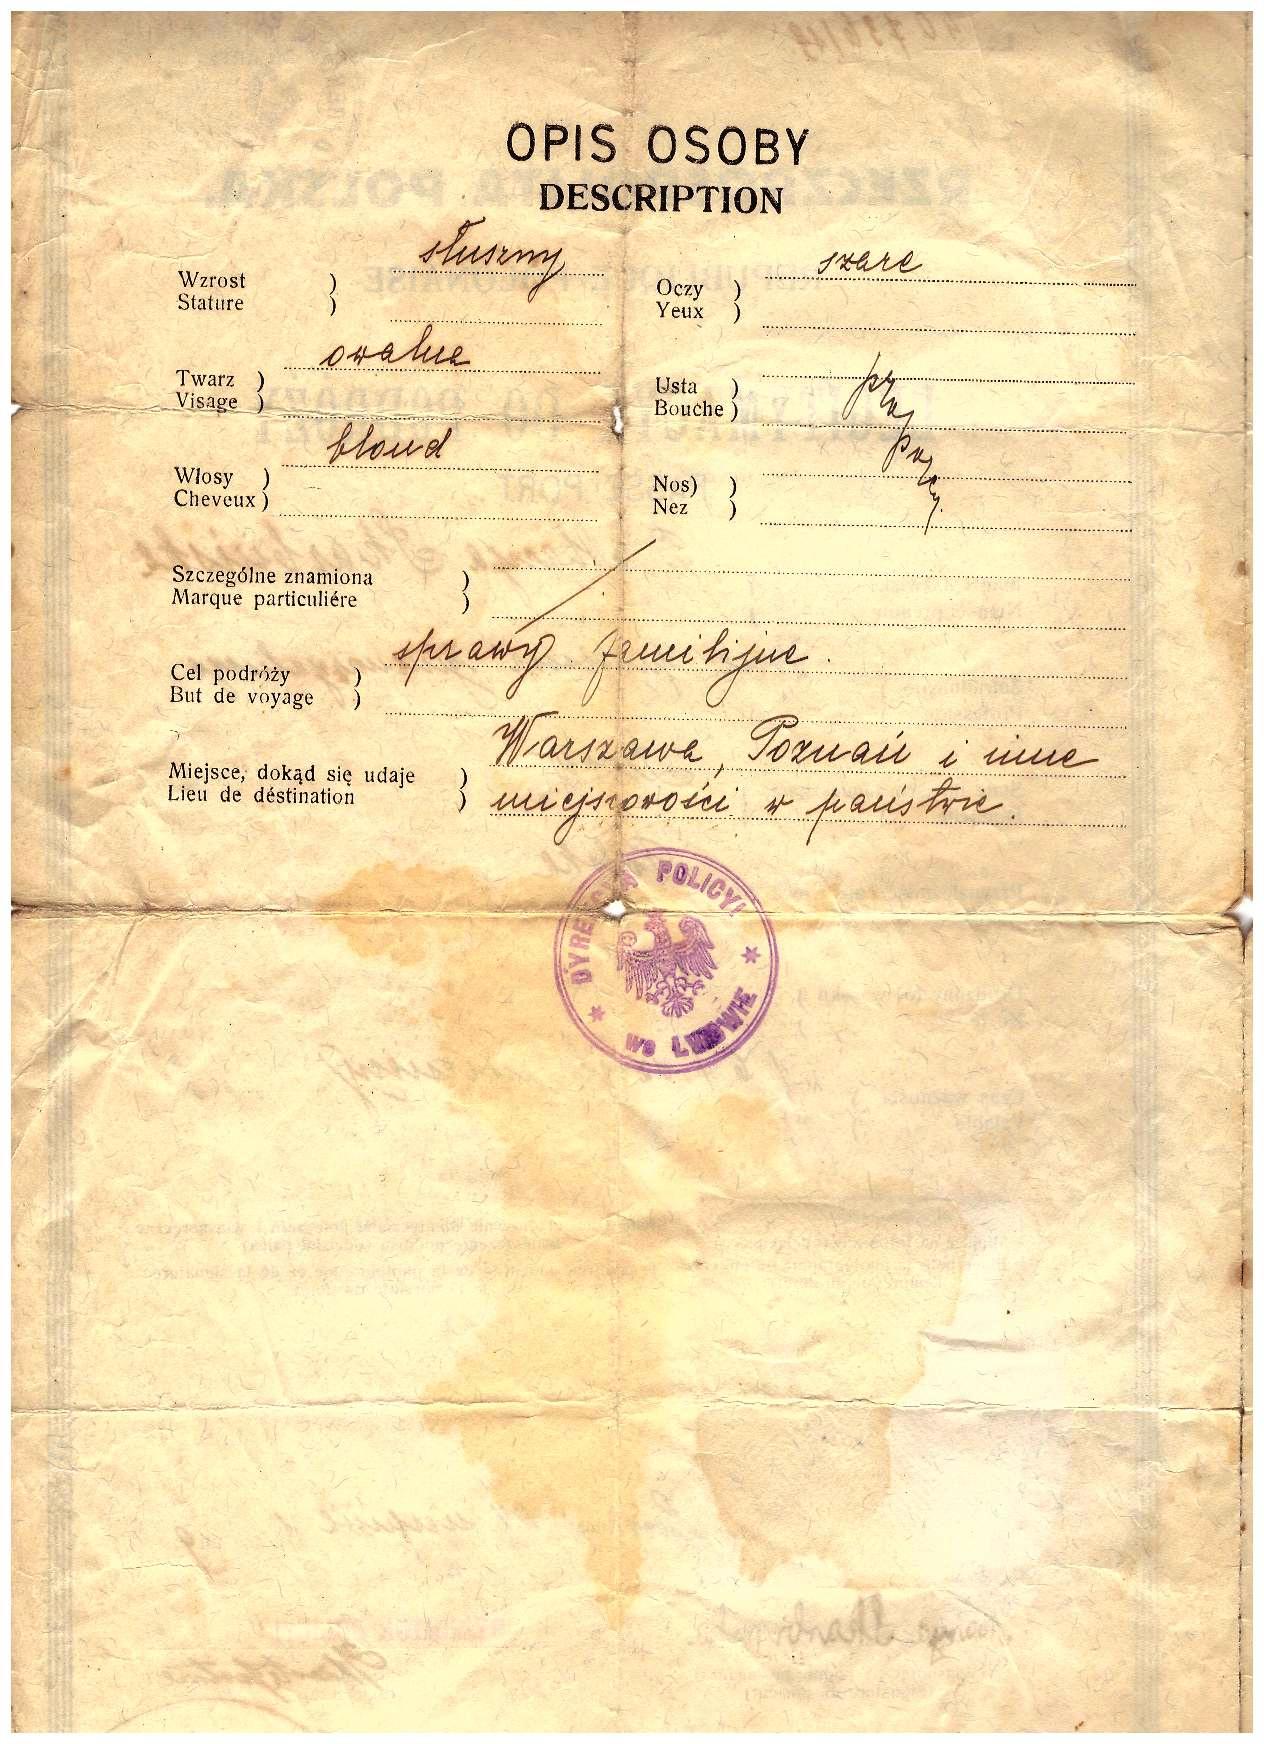 OPIS OSOBY
DESCRIPTION
Wzrost ) słuszny
Stature )
Oczy ) szare
Yeux )
Twarz ) owalna
Visage )
Usta )
Bouche )
Włosy ) blond
Cheveux )
Nos) )
Nez )
Szczególne znamiona )
Marque particuliére )
Cel podróży ) sprawy familijne.
But de voyage )
Miejsce, dokąd się udaje ) Warszawa, Poznań i inne
Lieu de déstination ) miejscowości w państwie.
DYREKCYA POLICYI
we LWOWIE